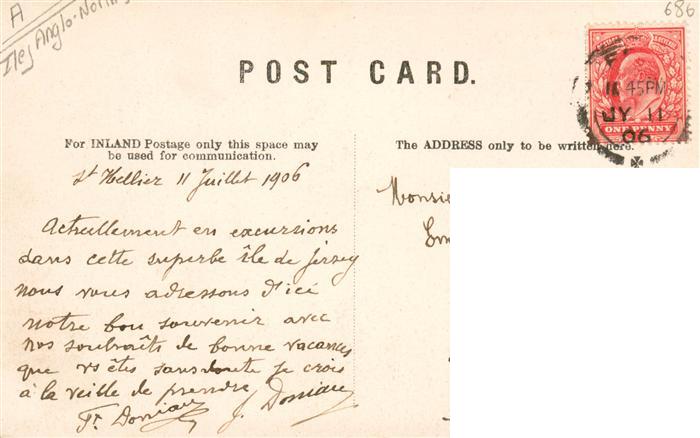 A
Iles Anglo-Norm
686
POST CARD.
11 45PM
JY 11
06
ONE PENNY
For INLAND Postage only this space may
be used for communication.
The ADDRESS only to be written here.
St Hellier 11 Juillet 1906
Monsie
Actuellement en excursions
dans cette superbe île de Jersey
nous vous adressons d'ici
notre bon souvenir avec
nos souhaits de bonne vacances
que vs êtes sans doute je crois
à la veille de prendre